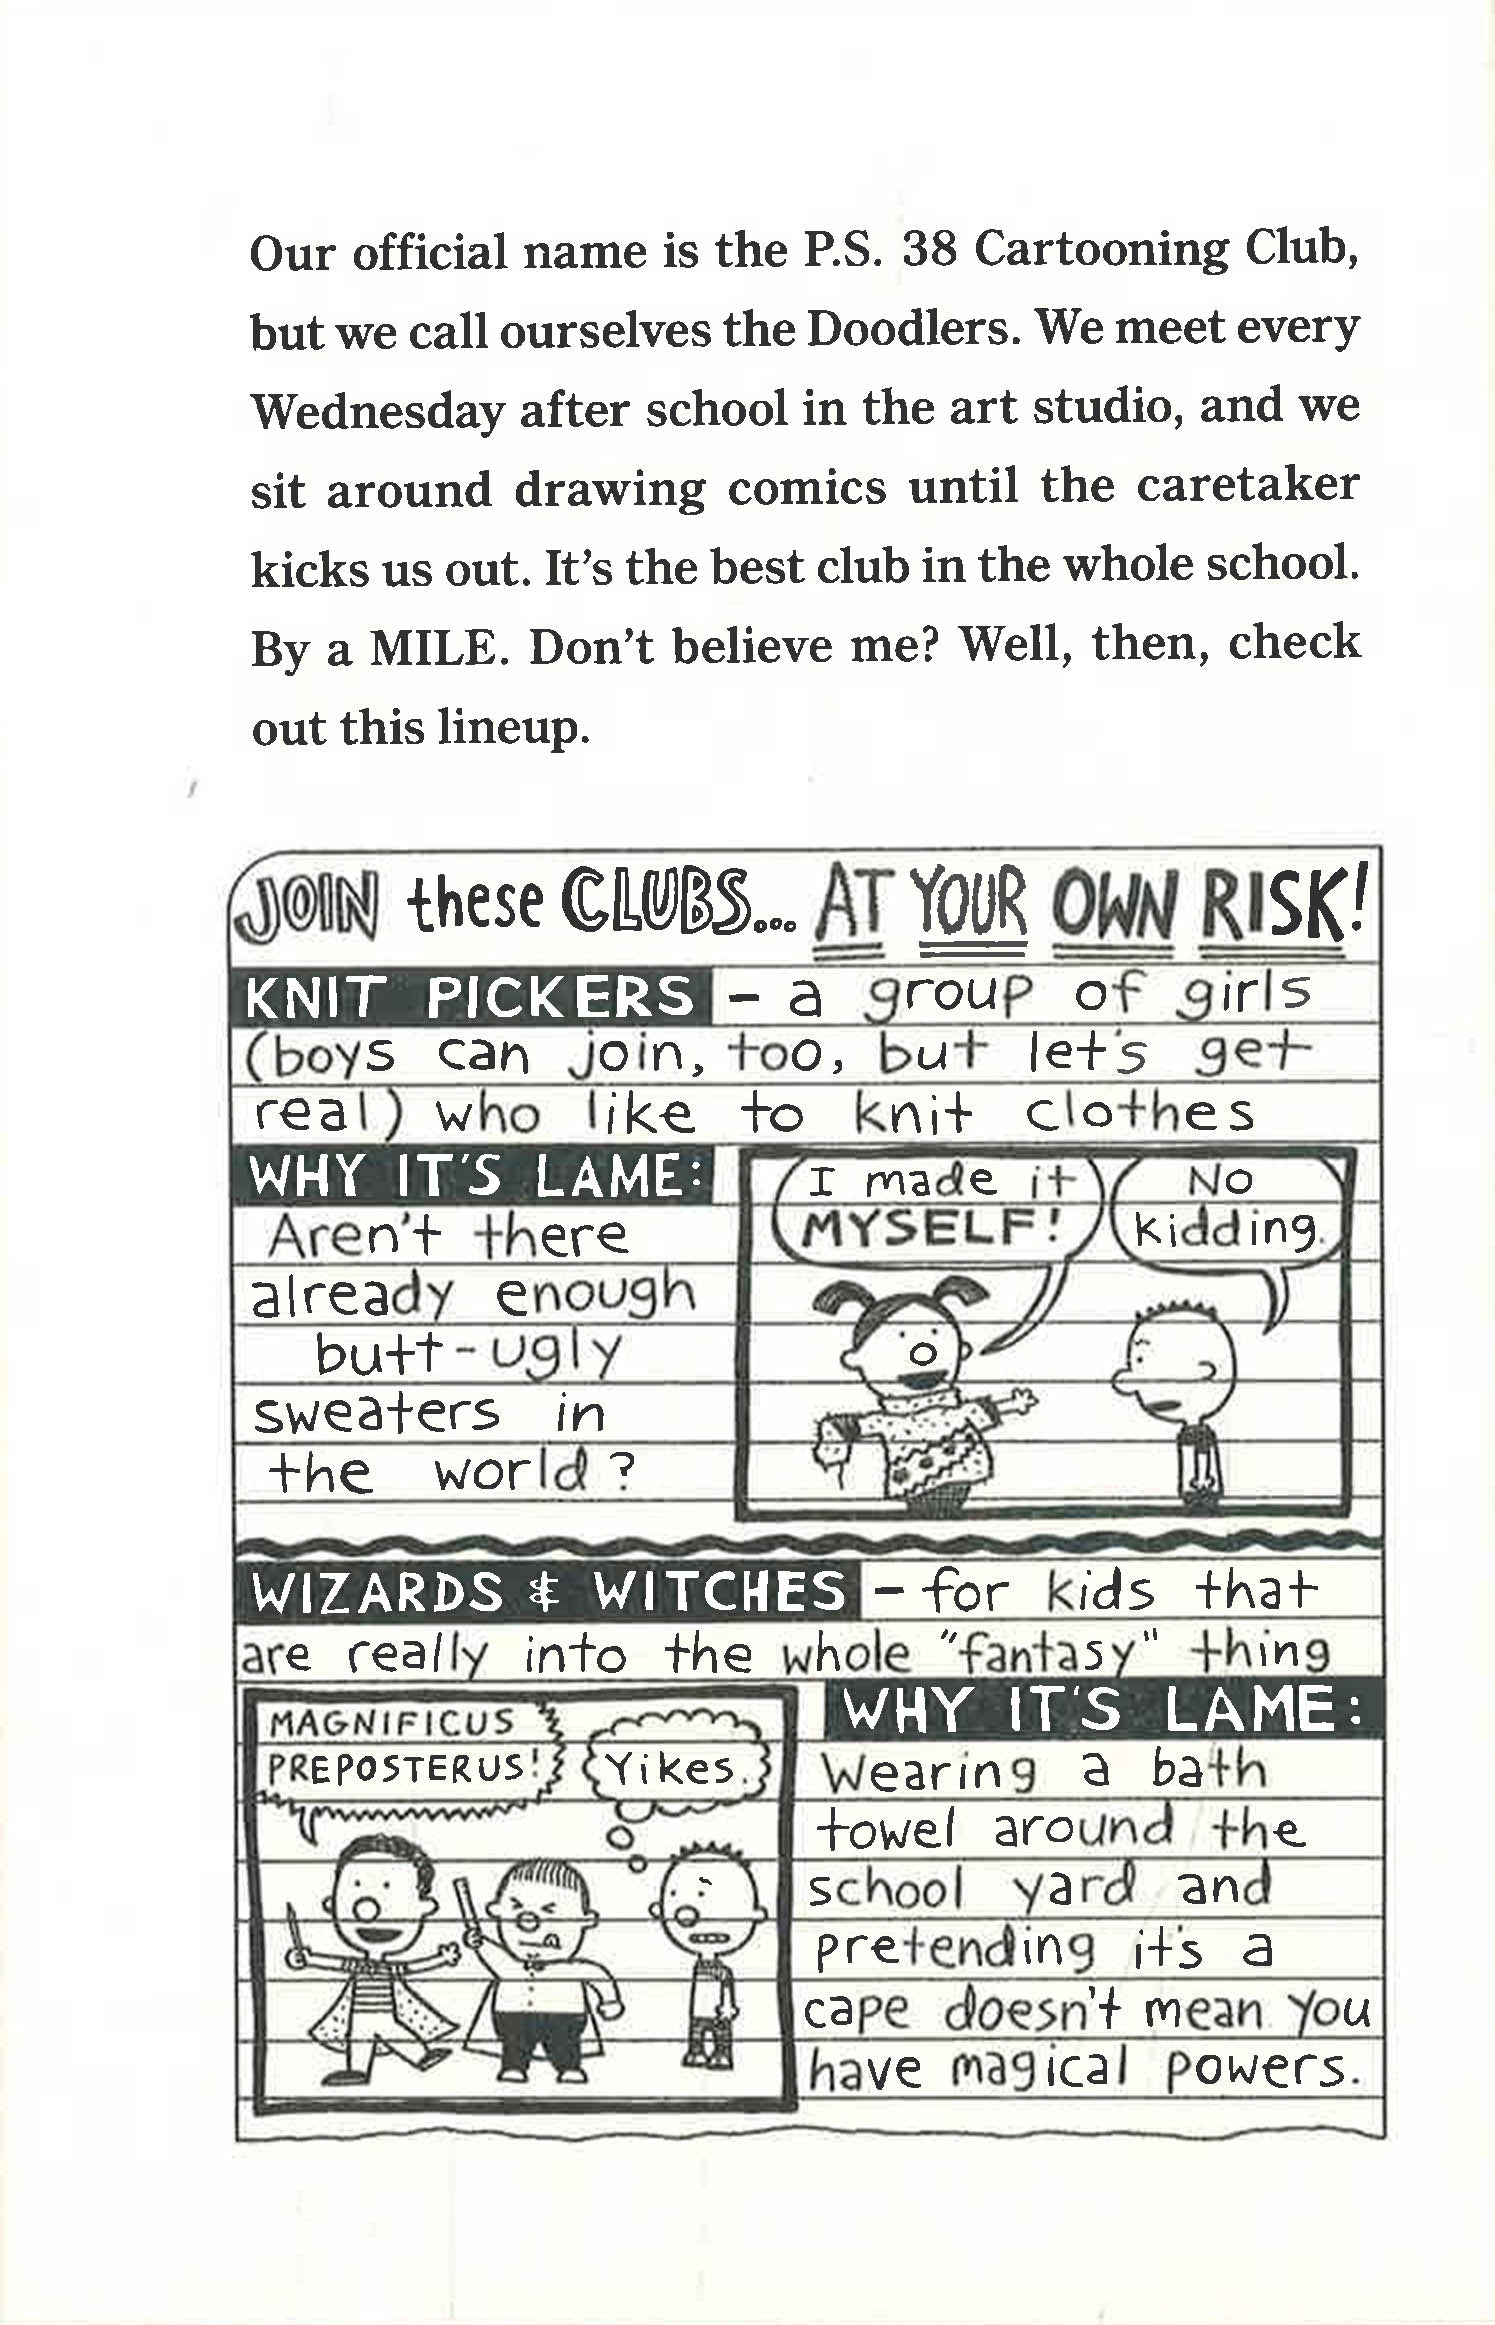 Our official name is the P.S. 38 Cartooning Club,
but we call ourselves the Doodlers. We meet every
Wednesday after school in the art studio, and we
sit around drawing comics until the caretaker
kicks us out. It’s the best club in the whole school.
By a MILE. Don’t believe me? Well, then, check
out this lineup.
JOIN these CLUBS... AT YOUR OWN RISK!
KNIT PICKERS - a group of girls
(boys can join, too, but let's get
real) who like to knit clothes
WHY IT'S LAME:
Aren't there
already enough
butt-ugly
sweaters in
the world?
I made it
MYSELF!
No
kidding.
WIZARDS & WITCHES - for kids that
are really into the whole "fantasy" thing
MAGNIFICUS
PREPOSTERUS!
Yikes.
WHY IT'S LAME:
Wearing a bath
towel around the
school yard and
pretending it's a
cape doesn't mean you
have magical powers.